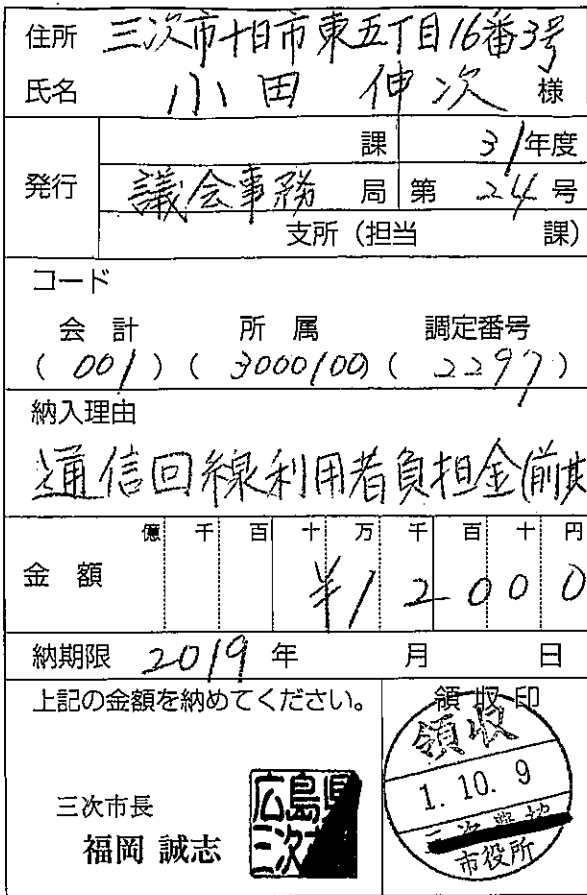 住所 三次市十日市東五丁目16番3号
氏名 小田 伸次 様
発行
課 31年度
議会事務 局 第 24 号
支所(担当 課)
コード
会計 所属 調定番号
( 001 ) ( 3000100) ( 2297 )
納入理由
通信回線利用者負担金(前期
億 千 百 十 万 千 百 十 円
金額 ¥12000
納期限 2019 年 月 日
上記の金額を納めてください。
領収印
領収
1. 10. 9
市役所
三次市長
福岡 誠志
広島県
三次